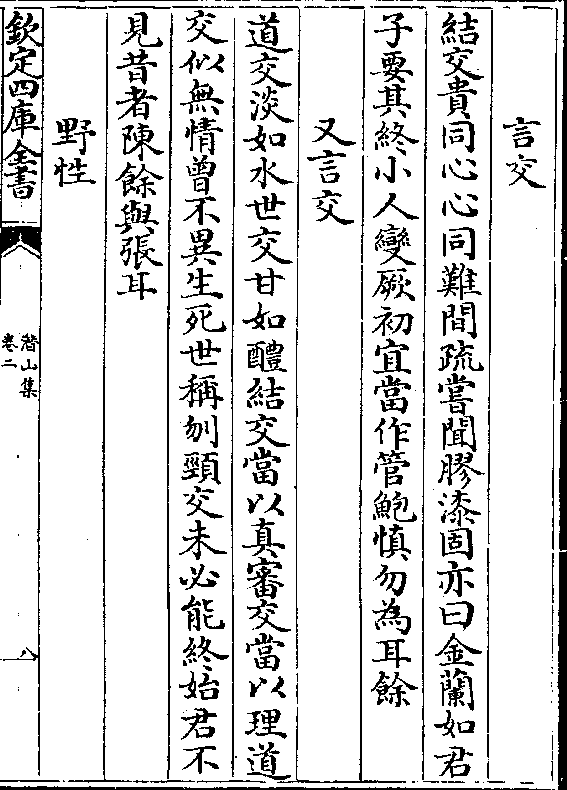 言交
結交貴同心心同難間疏嘗聞膠漆固亦曰金蘭如君
子要其終小人變厥初宜當作管鮑慎勿為耳餘
又言交
道交淡如水世交甘如醴結交當以真審交當以理道
交似無情曾不異生死世稱刎頸交未必能終始君不
見昔者陳餘與張耳
野性
欽定四庫全書
潛山集
卷二
八